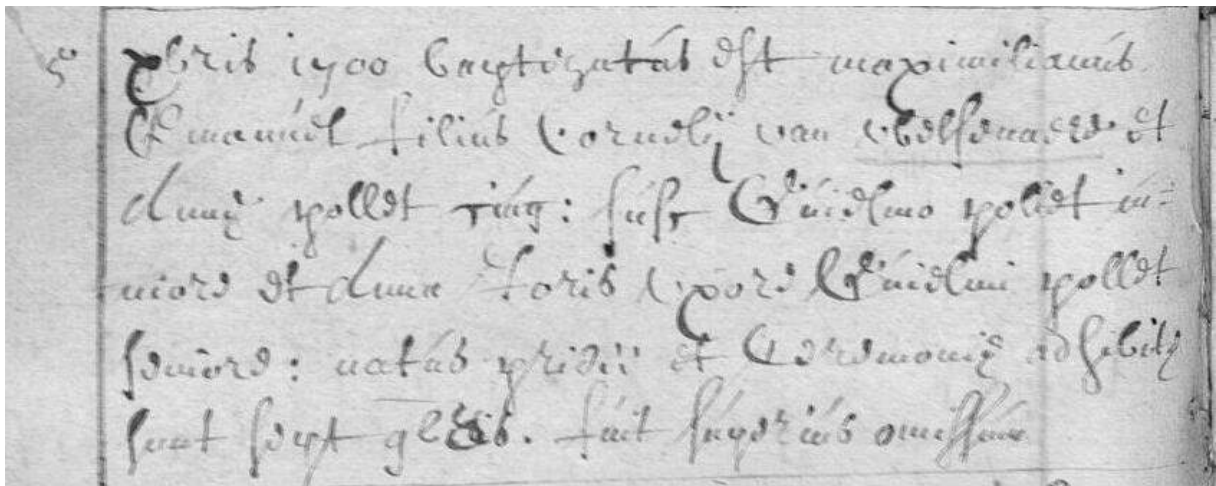 5° Xbris 1700 baptizatus est maximilianus
Emanuel filius Cornelij van Velsenaere et
Annę pollet iug: susc Guielmo pollet iu=
niore et Anna Uxore Guielmi pollet
seniore: natus pridiè et Ceremonię adhibitę
sunt sept fuit superius omissum